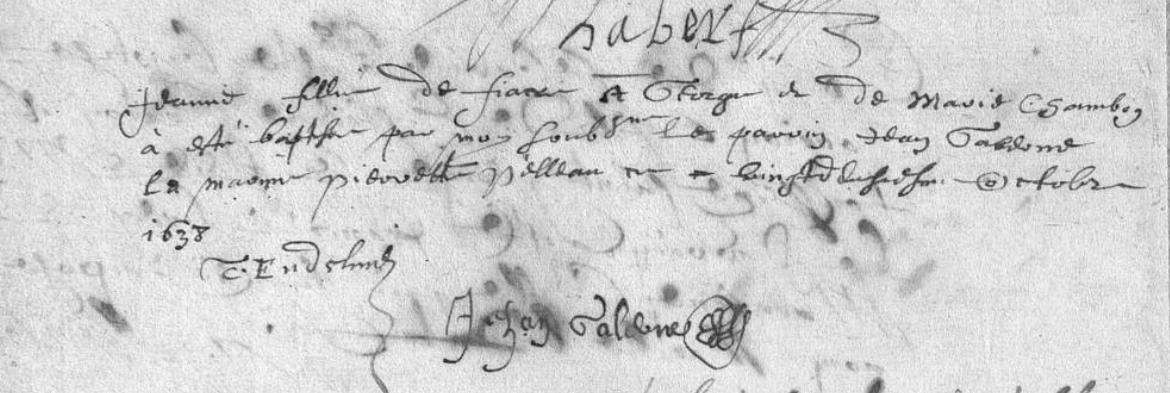 habert
Jeanne fille de fiacre George et de Marie Chambon
à esté baptisee par moy soubsne le parrin Jean Galerne
la marine pierrette pelleau ce vingtdeusiesme Octobre
1638
Jehan Galerne